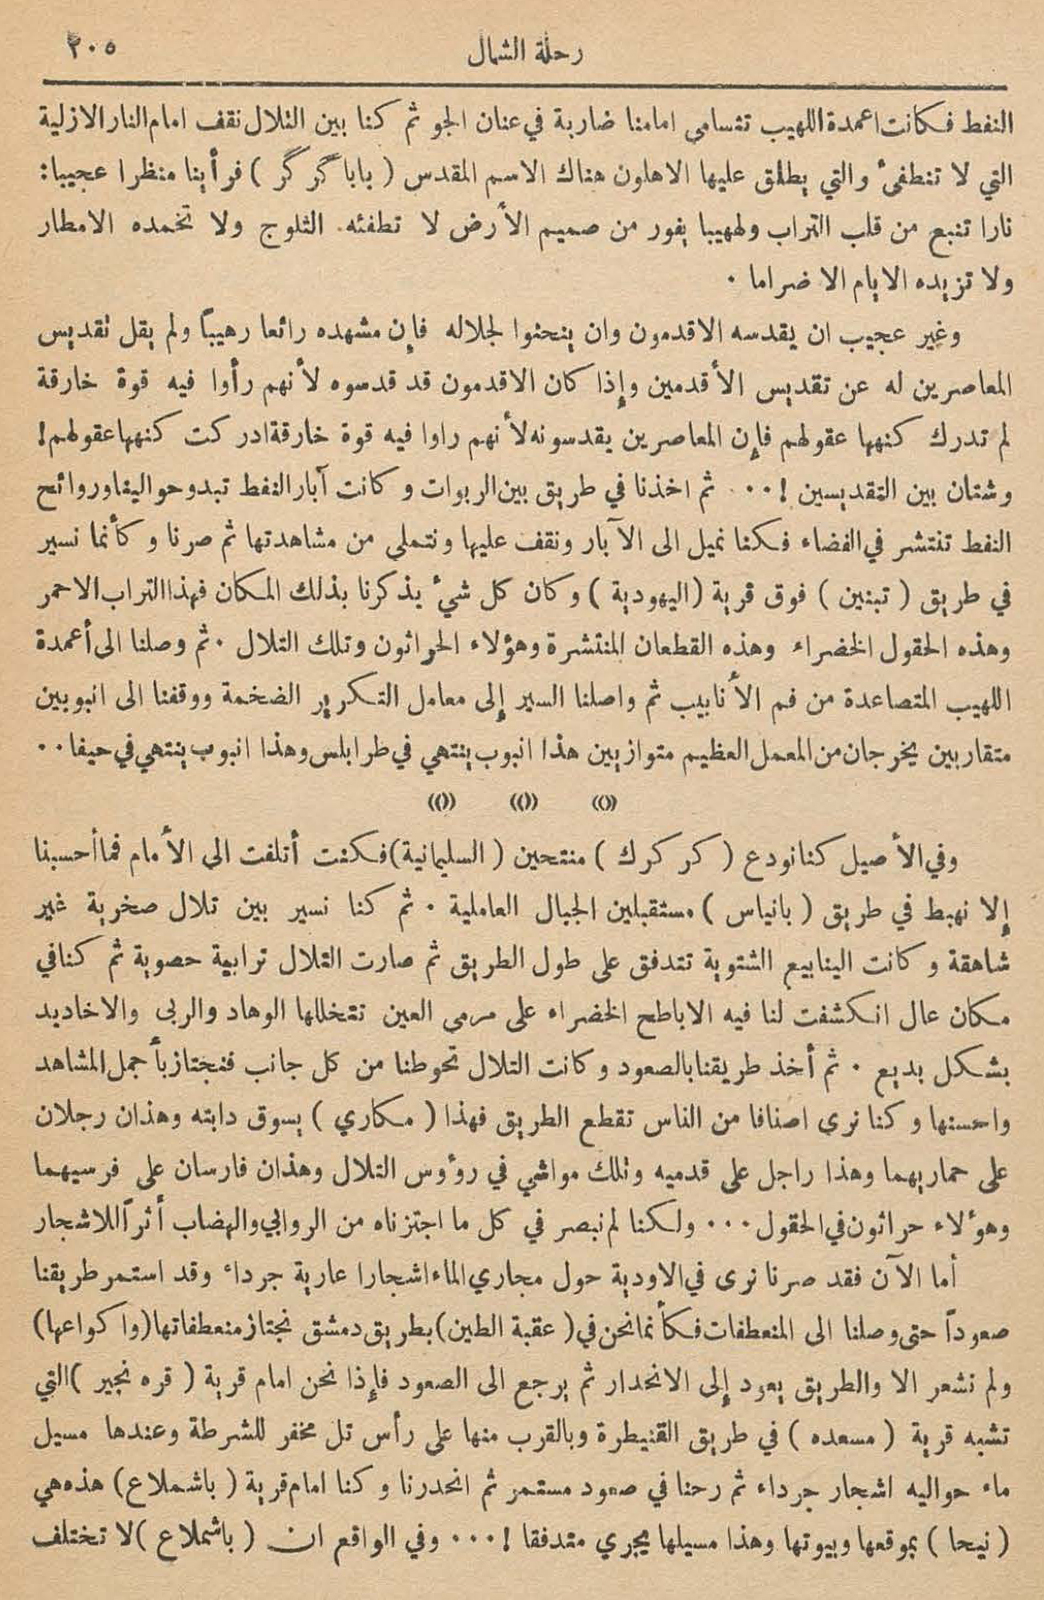 رحلة الشمال
٢٠٥
النفط فكانت اعمدة اللهيب تتسامى امامنا ضاربة في عنان الجو ثم كنا بين التلال نقف امام النار الازلية
التي لا تنطفئ والتي يطلق عليها الاهلون هناك الاسم المقدس ( بابا گرگر ) فرأينا منظرا عجيبا:
نارا تنبع من قلب التراب ولهيبا يفور من صميم الأرض لا تطفئه الثلوج ولا تخمده الامطار
ولا تزيده الايام الا ضراما .
وغير عجيب ان يقدسه الاقدمون وان ينحنوا لجلاله فإن مشهده رائعا رهيباً ولم يقل تقديس
المعاصرين له عن تقديس الأقدمين وإذا كان الاقدمون قد قدسوه لأنهم رأوا فيه قوة خارقة
لم تدرك كنهها عقولهم فإن المعاصرين يقدسونه لأنهم راوا فيه قوة خارقة ادركت كنهها عقولهم!
وشتان بين التقديسين !... ثم اخذنا في طريق بين الربوات وكانت آبار النفط تبدو حوالينا وروائح
النفط تنتشر في الفضاء فكنا نميل الى الآبار ونقف عليها ونتملى من مشاهدتها ثم صرنا وكأنما نسير
في طريق ( تبنين ) فوق قرية (اليهودية ) وكان كل شيء يذكرنا بذلك المكان فهذا التراب الاحمر
وهذه الحقول الخضراء وهذه القطعان المنتشرة وهؤلاء الحراثون وتلك التلال . ثم وصلنا الى أعمدة
اللهيب المتصاعدة من فم الأنابيب ثم واصلنا السير إلى معامل التكرير الضخمة ووقفنا الى انبوبين
متقاربين يخرجان من المعمل العظيم متوازيين هذا انبوب ينتهي في طرابلس وهذا انبوب ينتهي في حيفا . .
وفي الأصيل كنا نودع ( كركرك ) منتحين ( السليمانية) فكنت أتلفت الى الأمام فما أحسبنا
إلا نهبط في طريق ( بانياس ) مستقبلين الجبال العاملية . ثم كنا نسير بين تلال صخرية غير
شاهقة وكانت الينابيع الشتوية تتدفق على طول الطريق ثم صارت التلال ترابية حصوية ثم كنا في
مكان عال انكشفت لنا فيه الاباطح الخضراء على مرمى العين تتخللها الوهاد والربى والاخاديد
بشكل بديع . ثم أخذ طريقنا بالصعود وكانت التلال تحوطنا من كل جانب فنجتاز بأجمل المشاهد
واحسنها وكنا نرى اصنافا من الناس تقطع الطريق فهذا ( مكاري ) يسوق دابته وهذان رجلان
على حماريهما وهذا راجل على قدميه وتلك مواشي في رؤوس التلال وهذان فارسان على فرسيهما
وهؤلاء حراثون في الحقول ... ولكنا لم نبصر في كل ما اجتزناه من الروابي والهضاب أثراً للاشجار
أما الآن فقد صرنا نرى في الاودية حول مجاري الماء اشجارا عارية جرداء وقد استمر طريقنا
صعوداً حتى وصلنا الى المنعطفات فكأنما نحن في ( عقبة الطين) بطريق دمشق نجتاز منعطفاتها (واكواعها)
ولم نشعر الا والطريق يعود إلى الانحدار ثم يرجع الى الصعود فإذا نحن امام قرية ( قره نجير ) التي
تشبه قرية ( مسعده ) في طريق القنيطرة وبالقرب منها على رأس تل مخفر للشرطة وعندها مسيل
ماء حواليه اشجار جرداء ثم رحنا في صعود مستمر ثم انحدرنا وكنا امام قرية ( باشملاع) هذه هي
( نيحا ) بموقعها وبيوتها وهذا مسيلها يجري متدفقا !... وفي الواقع ان ( باشملاع ) لا تختلف